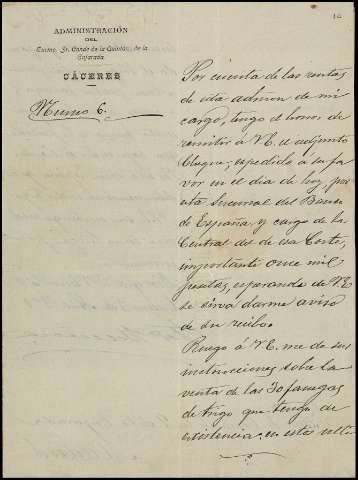 ADMINISTRACIÓN
DEL
Excmo. Sr. Conde de la Quinta de la
Enjarada
CÁCERES
Numo 6.
Por cuenta de las rentas
de esta admon de mi
cargo, tengo el honor de
remitir á V.E. el adjunto
Cheque, expedido á su fa
vor en el dia de hoy, por
esta Sucursal del Banco
de España y cargo de la
Central de esa Corte,
importante once mil
pesetas, esperando de V.E.
se sirva darme aviso
de su recibo.
Ruego á V.E. me de sus
instrucciones sobre la
venta de las 30 fanegas
de trigo que tengo en
existencia, en estos